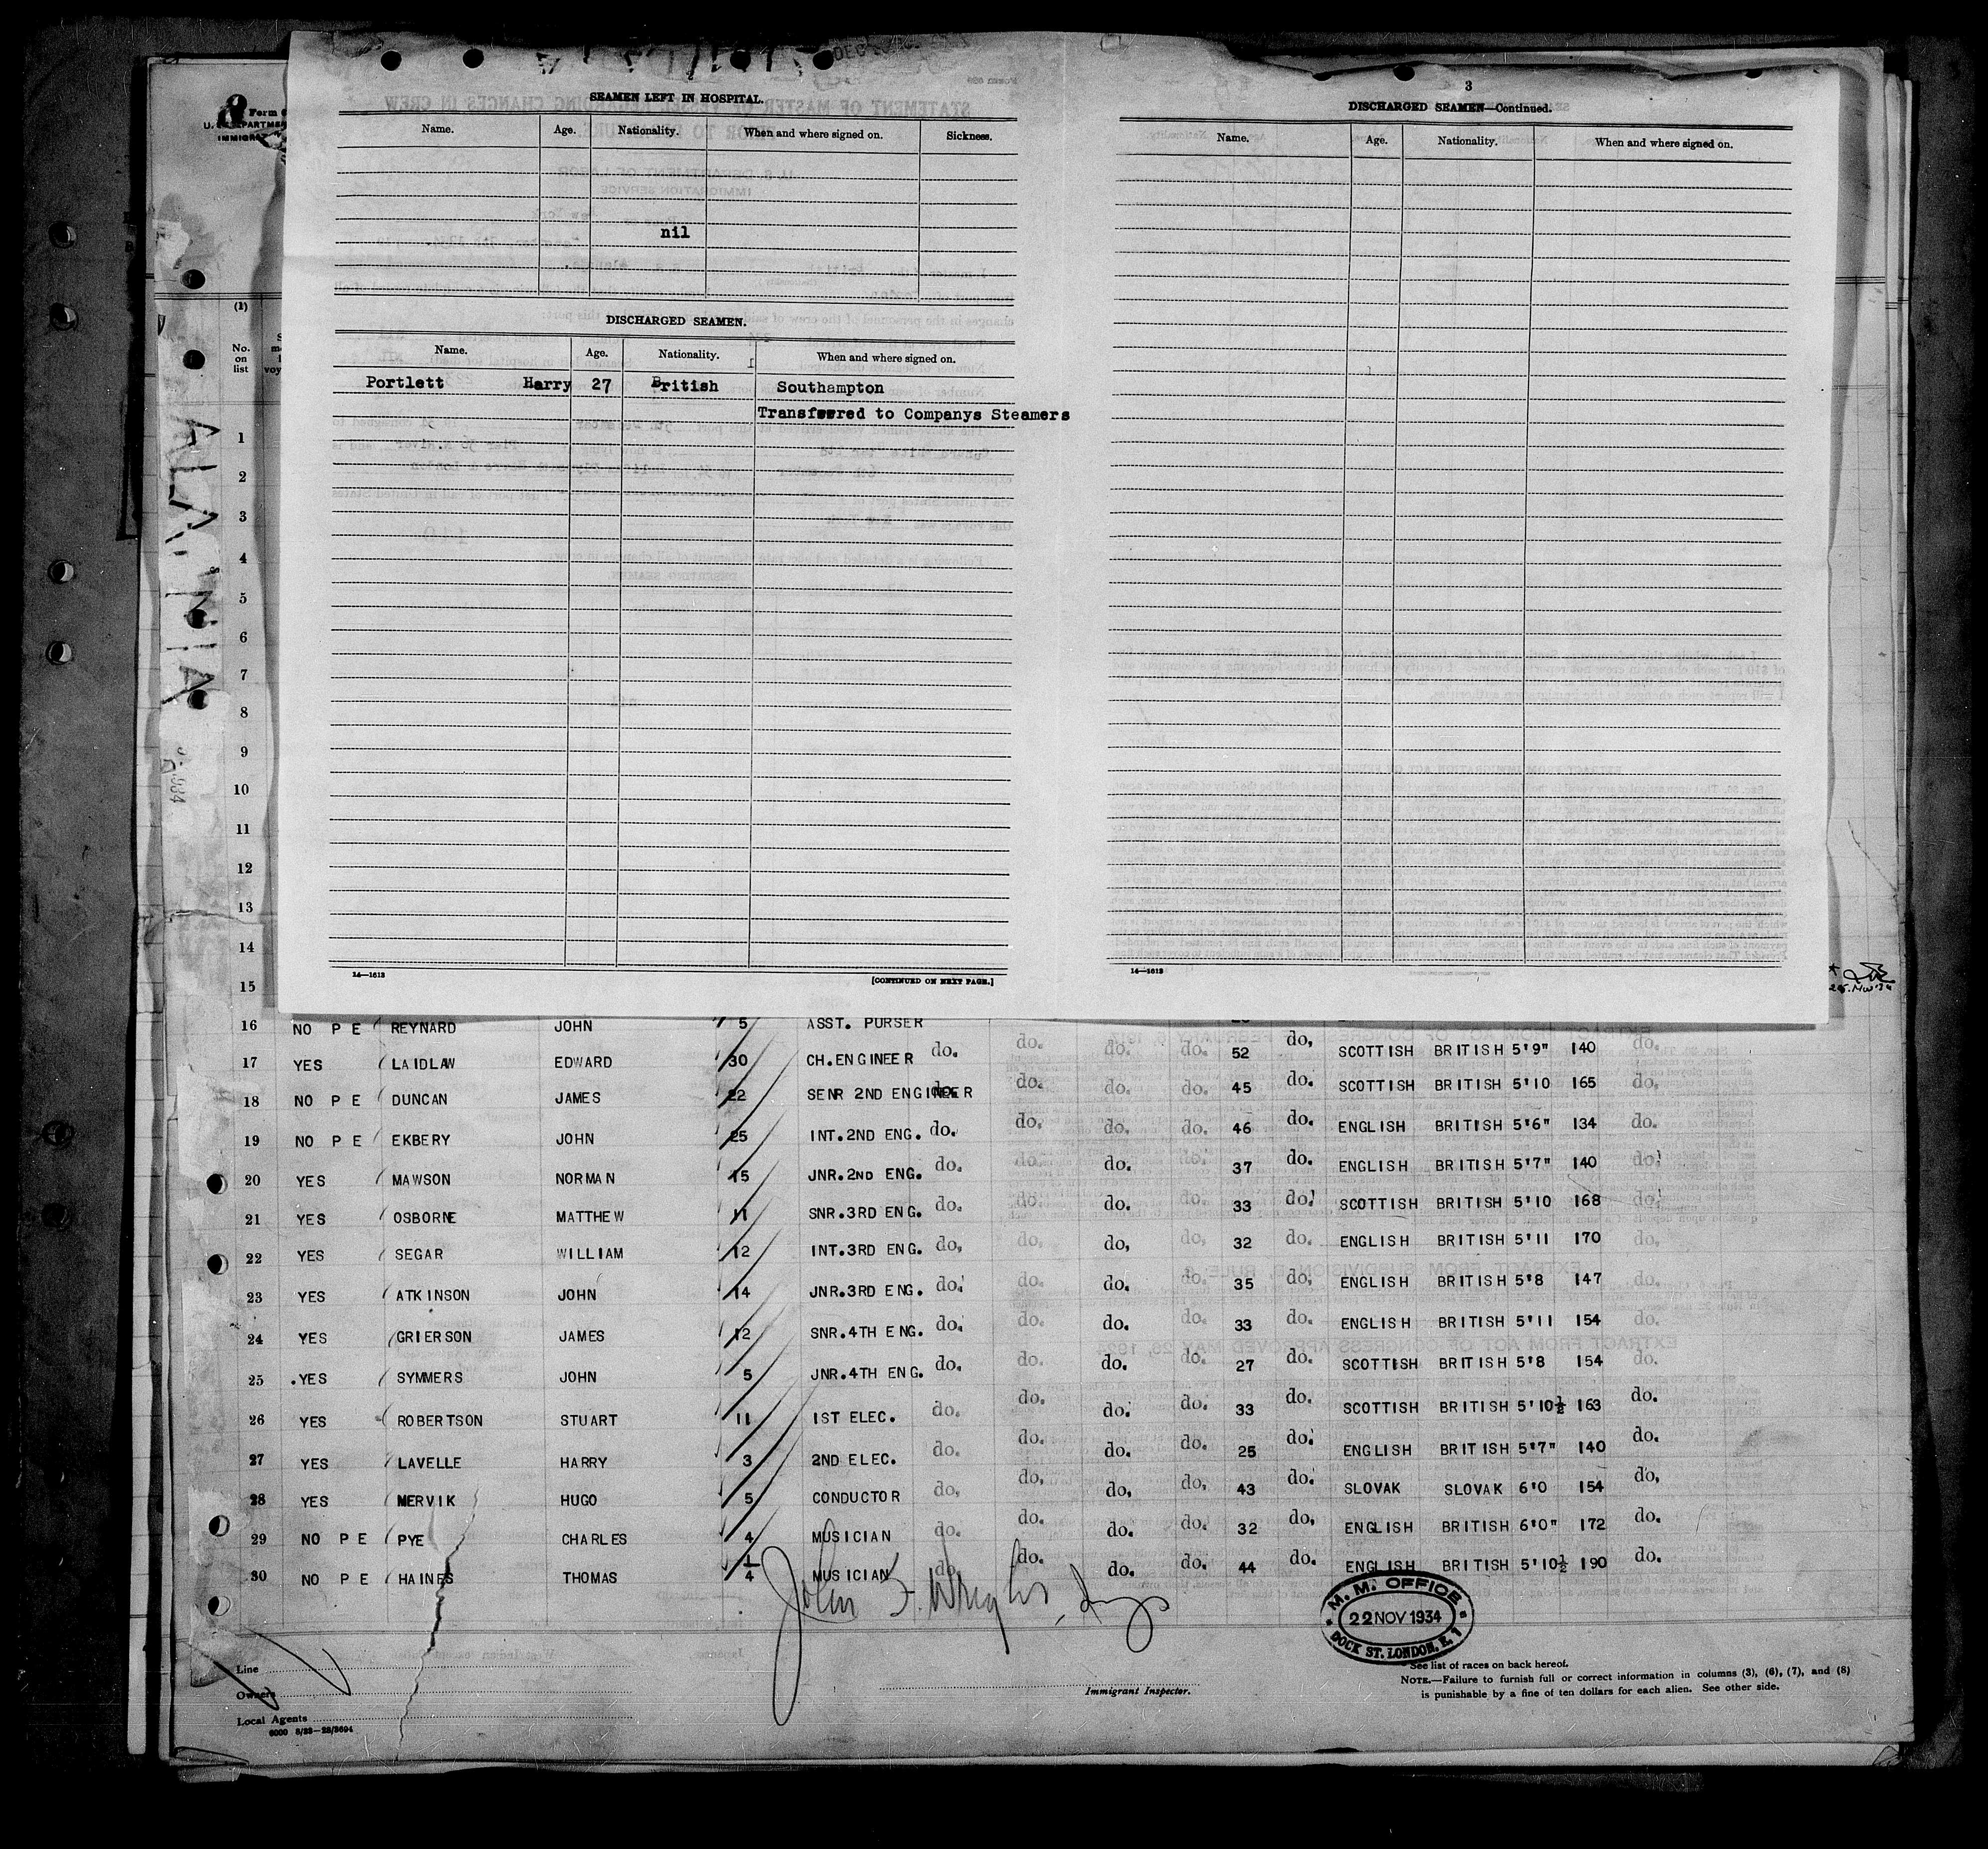 SEAMEN LEFT IN HOSPITAL.
Name. Age. Nationality. When and where signed on. Sickness.
nil
DISCHARGED SEAMEN.
Name. Age. Nationality. When and where signed on.
Portlett Harry 27 British Southampton
Transferred to Companys Steamers
14—1613 [CONTINUED ON NEXT PAGE.]
3
DISCHARGED SEAMEN—Continued.
Name. Age. Nationality. When and where signed on.
14—1613
Form
(1)
No. on list
ALAUNIA
1
2
3
4
5
6
7
8
9
10
11
12
13
14
15
16 NO P E REYNARD JOHN 5 ASST. PURSER
17 YES LAIDLAW EDWARD 30 CH.ENGINEER do. do. do. do. 52 do. SCOTTISH BRITISH 5'9" 140 do.
18 NO P E DUNCAN JAMES 22 SENR 2ND ENGINEER do. do. do. do. 45 do. SCOTTISH BRITISH 5'10 165 do.
19 NO P E EKBERY JOHN 25 INT.2ND ENG. do. do. do. do. 46 do. ENGLISH BRITISH 5'6" 134 do.
20 YES MAWSON NORMAN 15 JNR.2ND ENG. do. do. do. do. 37 do. ENGLISH BRITISH 5'7" 140 do.
21 YES OSBORNE MATTHEW 11 SNR.3RD ENG. do. do. do. do. 33 do. SCOTTISH BRITISH 5'10 168 do.
22 YES SEGAR WILLIAM 12 INT.3RD ENG. do. do. do. do. 32 do. ENGLISH BRITISH 5'11 170 do.
23 YES ATKINSON JOHN 14 JNR.3RD ENG. do. do. do. do. 35 do. ENGLISH BRITISH 5'8 147 do.
24 YES GRIERSON JAMES 12 SNR.4TH ENG. do. do. do. do. 33 do. ENGLISH BRITISH 5'11 154 do.
25 YES SYMMERS JOHN 5 JNR.4TH ENG. do. do. do. do. 27 do. SCOTTISH BRITISH 5'8 154 do.
26 YES ROBERTSON STUART 11 1ST ELEC. do. do. do. do. 33 do. SCOTTISH BRITISH 5'10½ 163 do.
27 YES LAVELLE HARRY 3 2ND ELEC. do. do. do. do. 25 do. ENGLISH BRITISH 5'7" 140 do.
28 YES MERVIK HUGO 5 CONDUCTOR do. do. do. do. 43 do. SLOVAK SLOVAK 6'0 154 do.
29 NO P E PYE CHARLES 4 MUSICIAN do. do. do. do. 32 do. ENGLISH BRITISH 6'0" 172 do.
30 NO P E HAINES THOMAS 4 MUSICIAN do. do. do. do. 44 do. ENGLISH BRITISH 5'10½ 190 do.
M.M. OFFICE
22 NOV 1934
DOCK ST. LONDON, E.1
Line
Owners
Local Agents
6000 8/33—28/3694
Immigrant Inspector.
* See list of races on back hereof.
NOTE.—Failure to furnish full or correct information in columns (3), (6), (7), and (8)
is punishable by a fine of ten dollars for each alien. See other side.